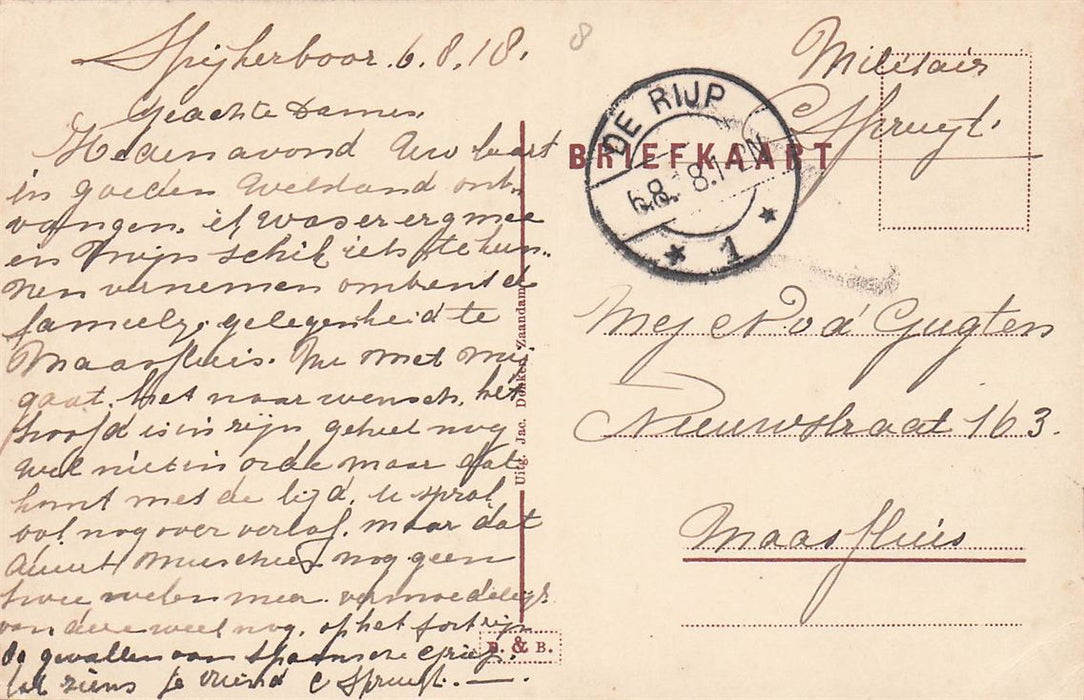 Spijkerboor. 6.8.18.
Geachte Dames.
Heden avond Uw kaart
in goeden Welstand ont-
vangen. er
en Mijn schik iets te kun-
nen vernemen omtrent de
gelegenheid te
Maassluis. Nu met mij
gaat het naar wensch. het
hoofd is in zijn geheel nog
wel niet in orde maar dat
komt met de tijd. U sprak
ook nog over verlof. maar dat
duurt Misschien nog geen
twee weken meer. vermoedelijk
van deze week nog. op het fort zijn
30 gevallen van Spaansche Griep.
tot ziens je vriend C Spruyt.
8
Militair
C Spruyt.
BRIEFKAART
DE RIJP
6.8.18.1-2N
1
Mej N. v d Gugten
Nieuwstraat 163.
Maassluis
Uitg. Jac. Donker, Zaandam
D. & B.